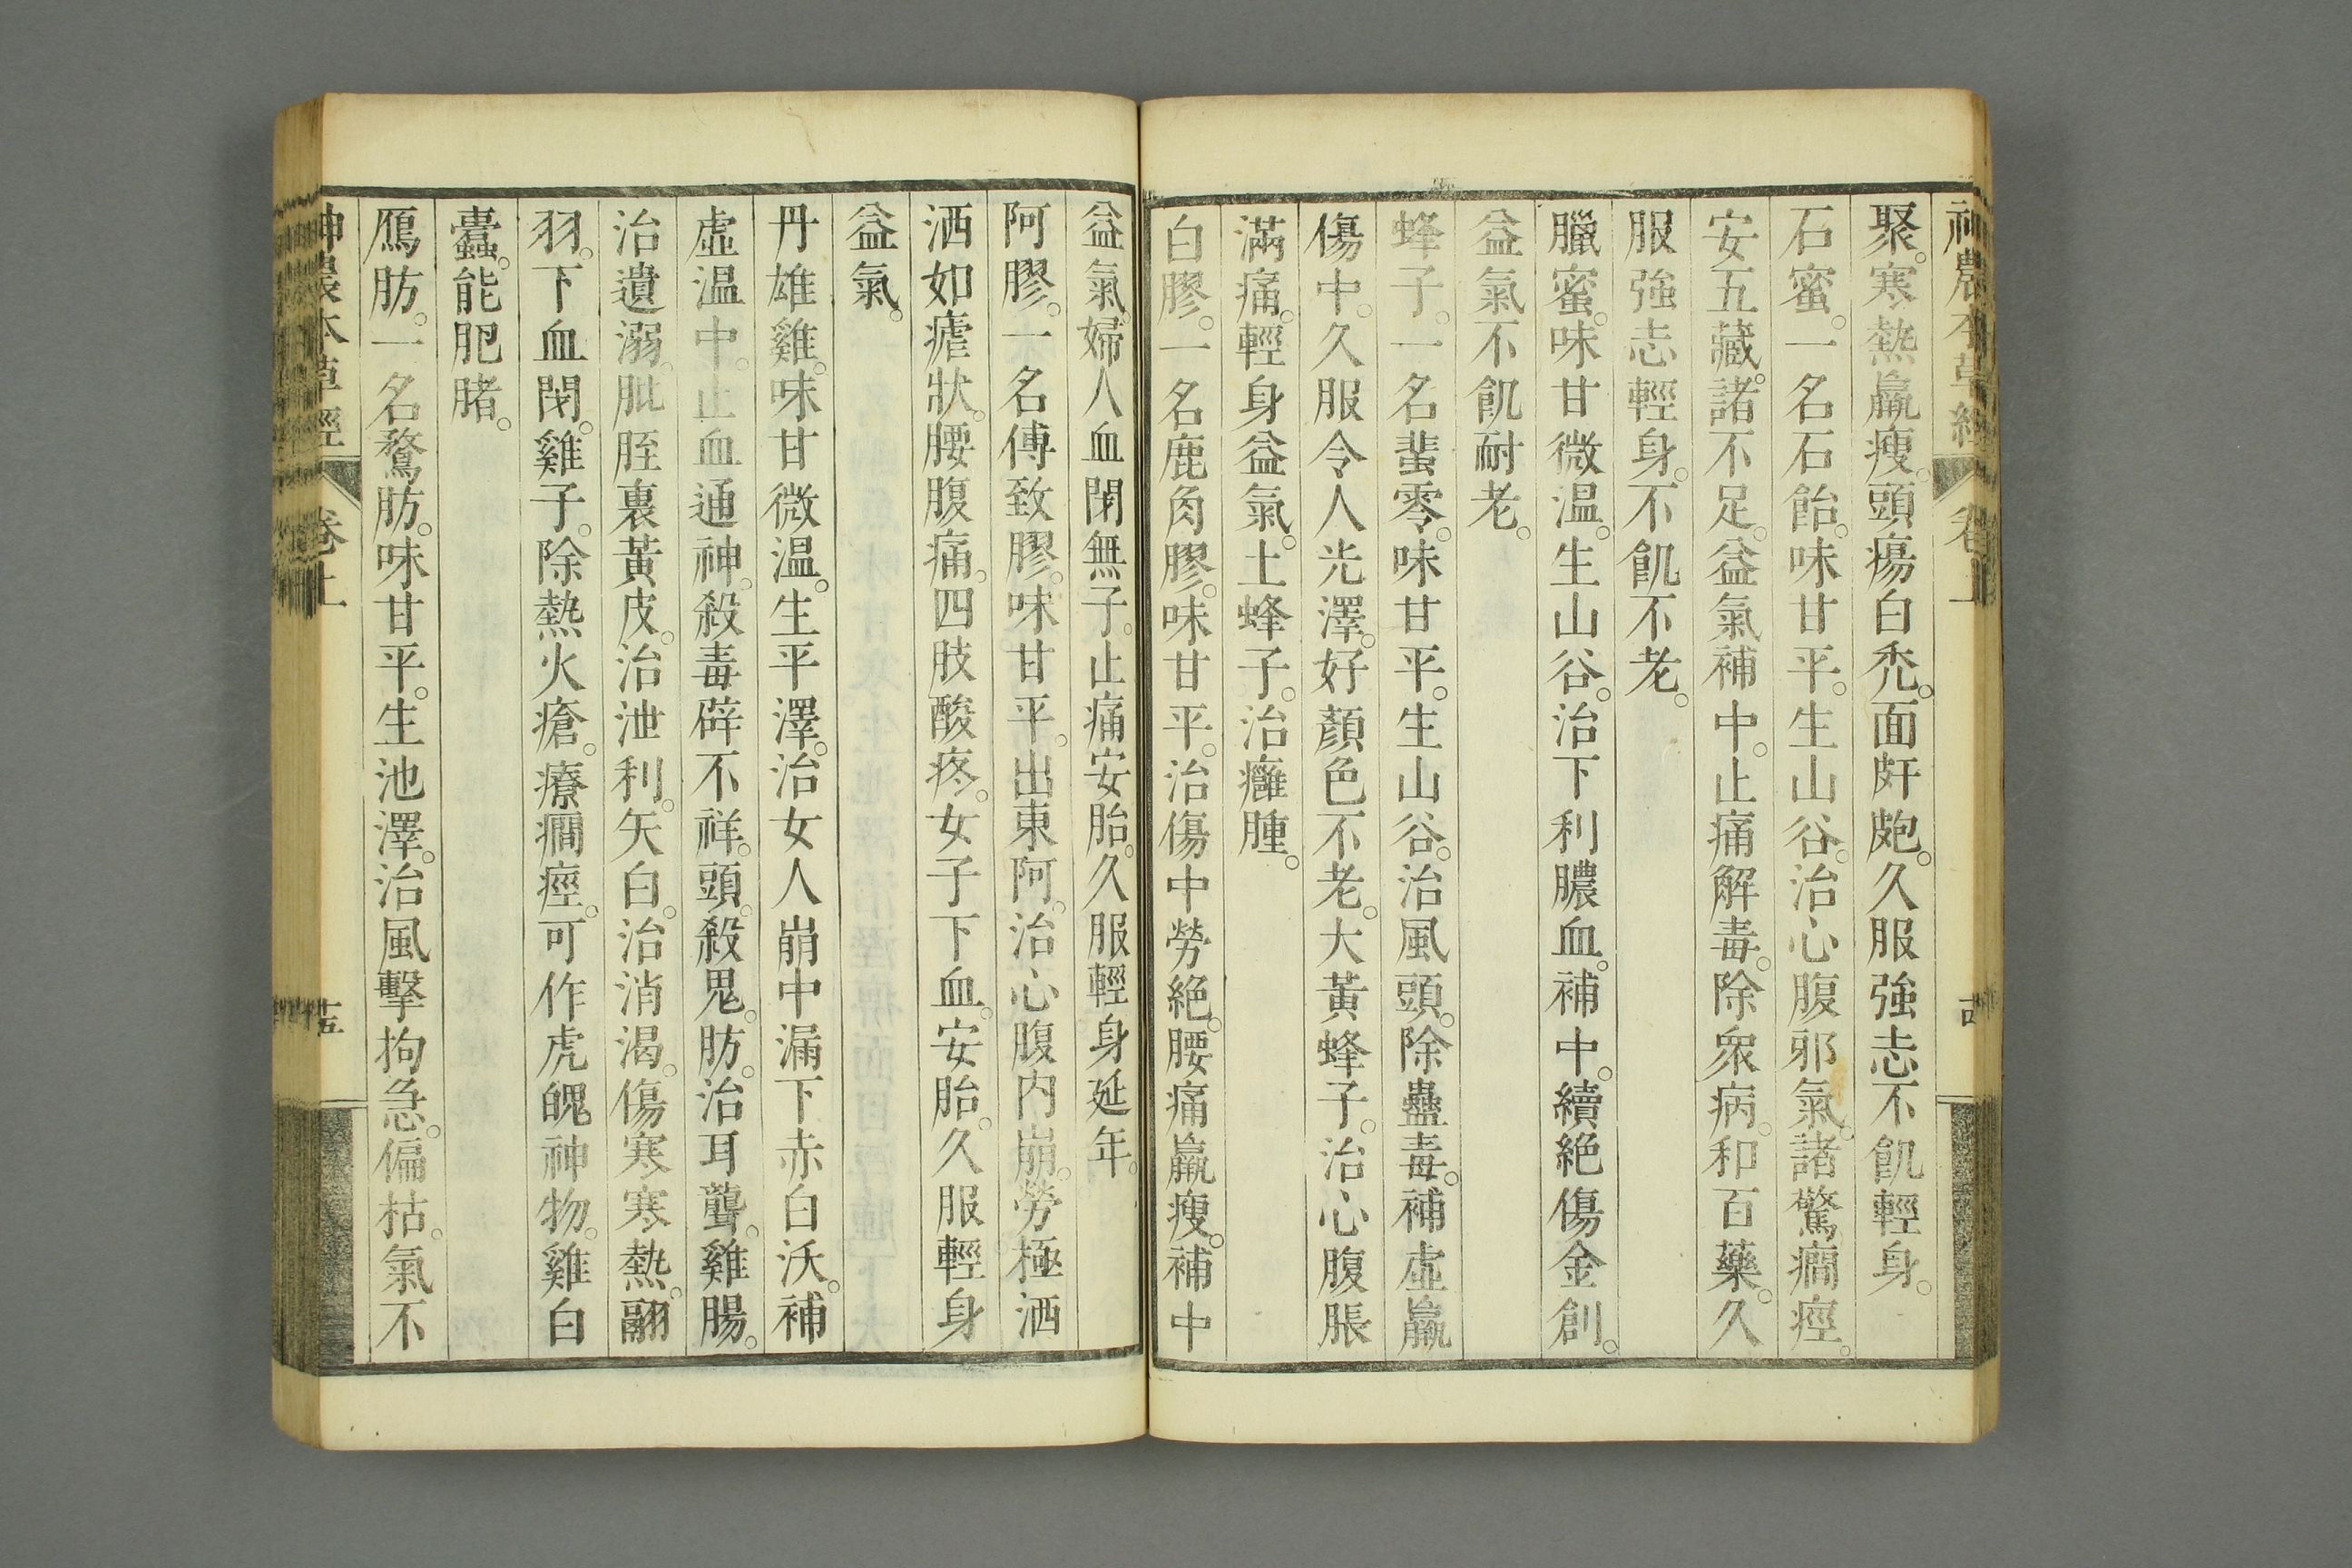 神農本草經 卷上
聚。寒熱羸瘦。頭瘍白禿。面皯皰。久服強志不飢輕身。
石蜜。一名石飴。味甘平。生山谷。治心腹邪氣。諸驚癎痙。
安五藏。諸不足。益氣補中。止痛解毒。除衆病。和百藥。久
服強志輕身。不飢不老。
臘蜜。味甘微温。生山谷。治下利膿血。補中。續絶傷金創。
益氣不飢耐老。
蜂子。一名蜚零。味甘平。生山谷。治風頭。除蠱毒。補虛羸
傷中。久服令人光澤。好顏色不老。大黃蜂子。治心腹脹
滿痛。輕身益氣。土蜂子。治癰腫。
白膠。一名鹿角膠。味甘平。治傷中勞絶。腰痛羸瘦。補中
益氣婦人血閉無子。止痛安胎。久服輕身延年。
阿膠。一名傅致膠。味甘平。出東阿。治心腹内崩。勞極洒
洒如瘧狀。腰腹痛。四肢酸疼。女子下血。安胎。久服輕身
益氣。
丹雄雞。味甘微温。生平澤。治女人崩中漏下赤白沃。補
虛温中。止血通神。殺毒辟不祥。頭。殺鬼。肪。治耳聾。雞腸。
治遺溺。肶胵裏黃皮。治泄利。矢白。治消渴。傷寒寒熱。翮
羽。下血閉。雞子。除熱火瘡。療癎痙。可作虎魄神物。雞白
蠹。能肥腞。
鴈肪。一名鶩肪。味甘平。生池澤。治風擊拘急。偏枯。氣不
神農本草經 卷上 十五